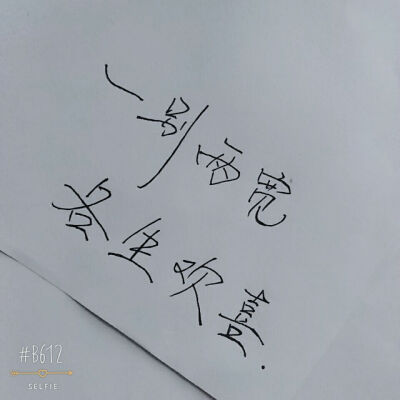 一别两宽
各生欢喜.
#B612
SELFIE